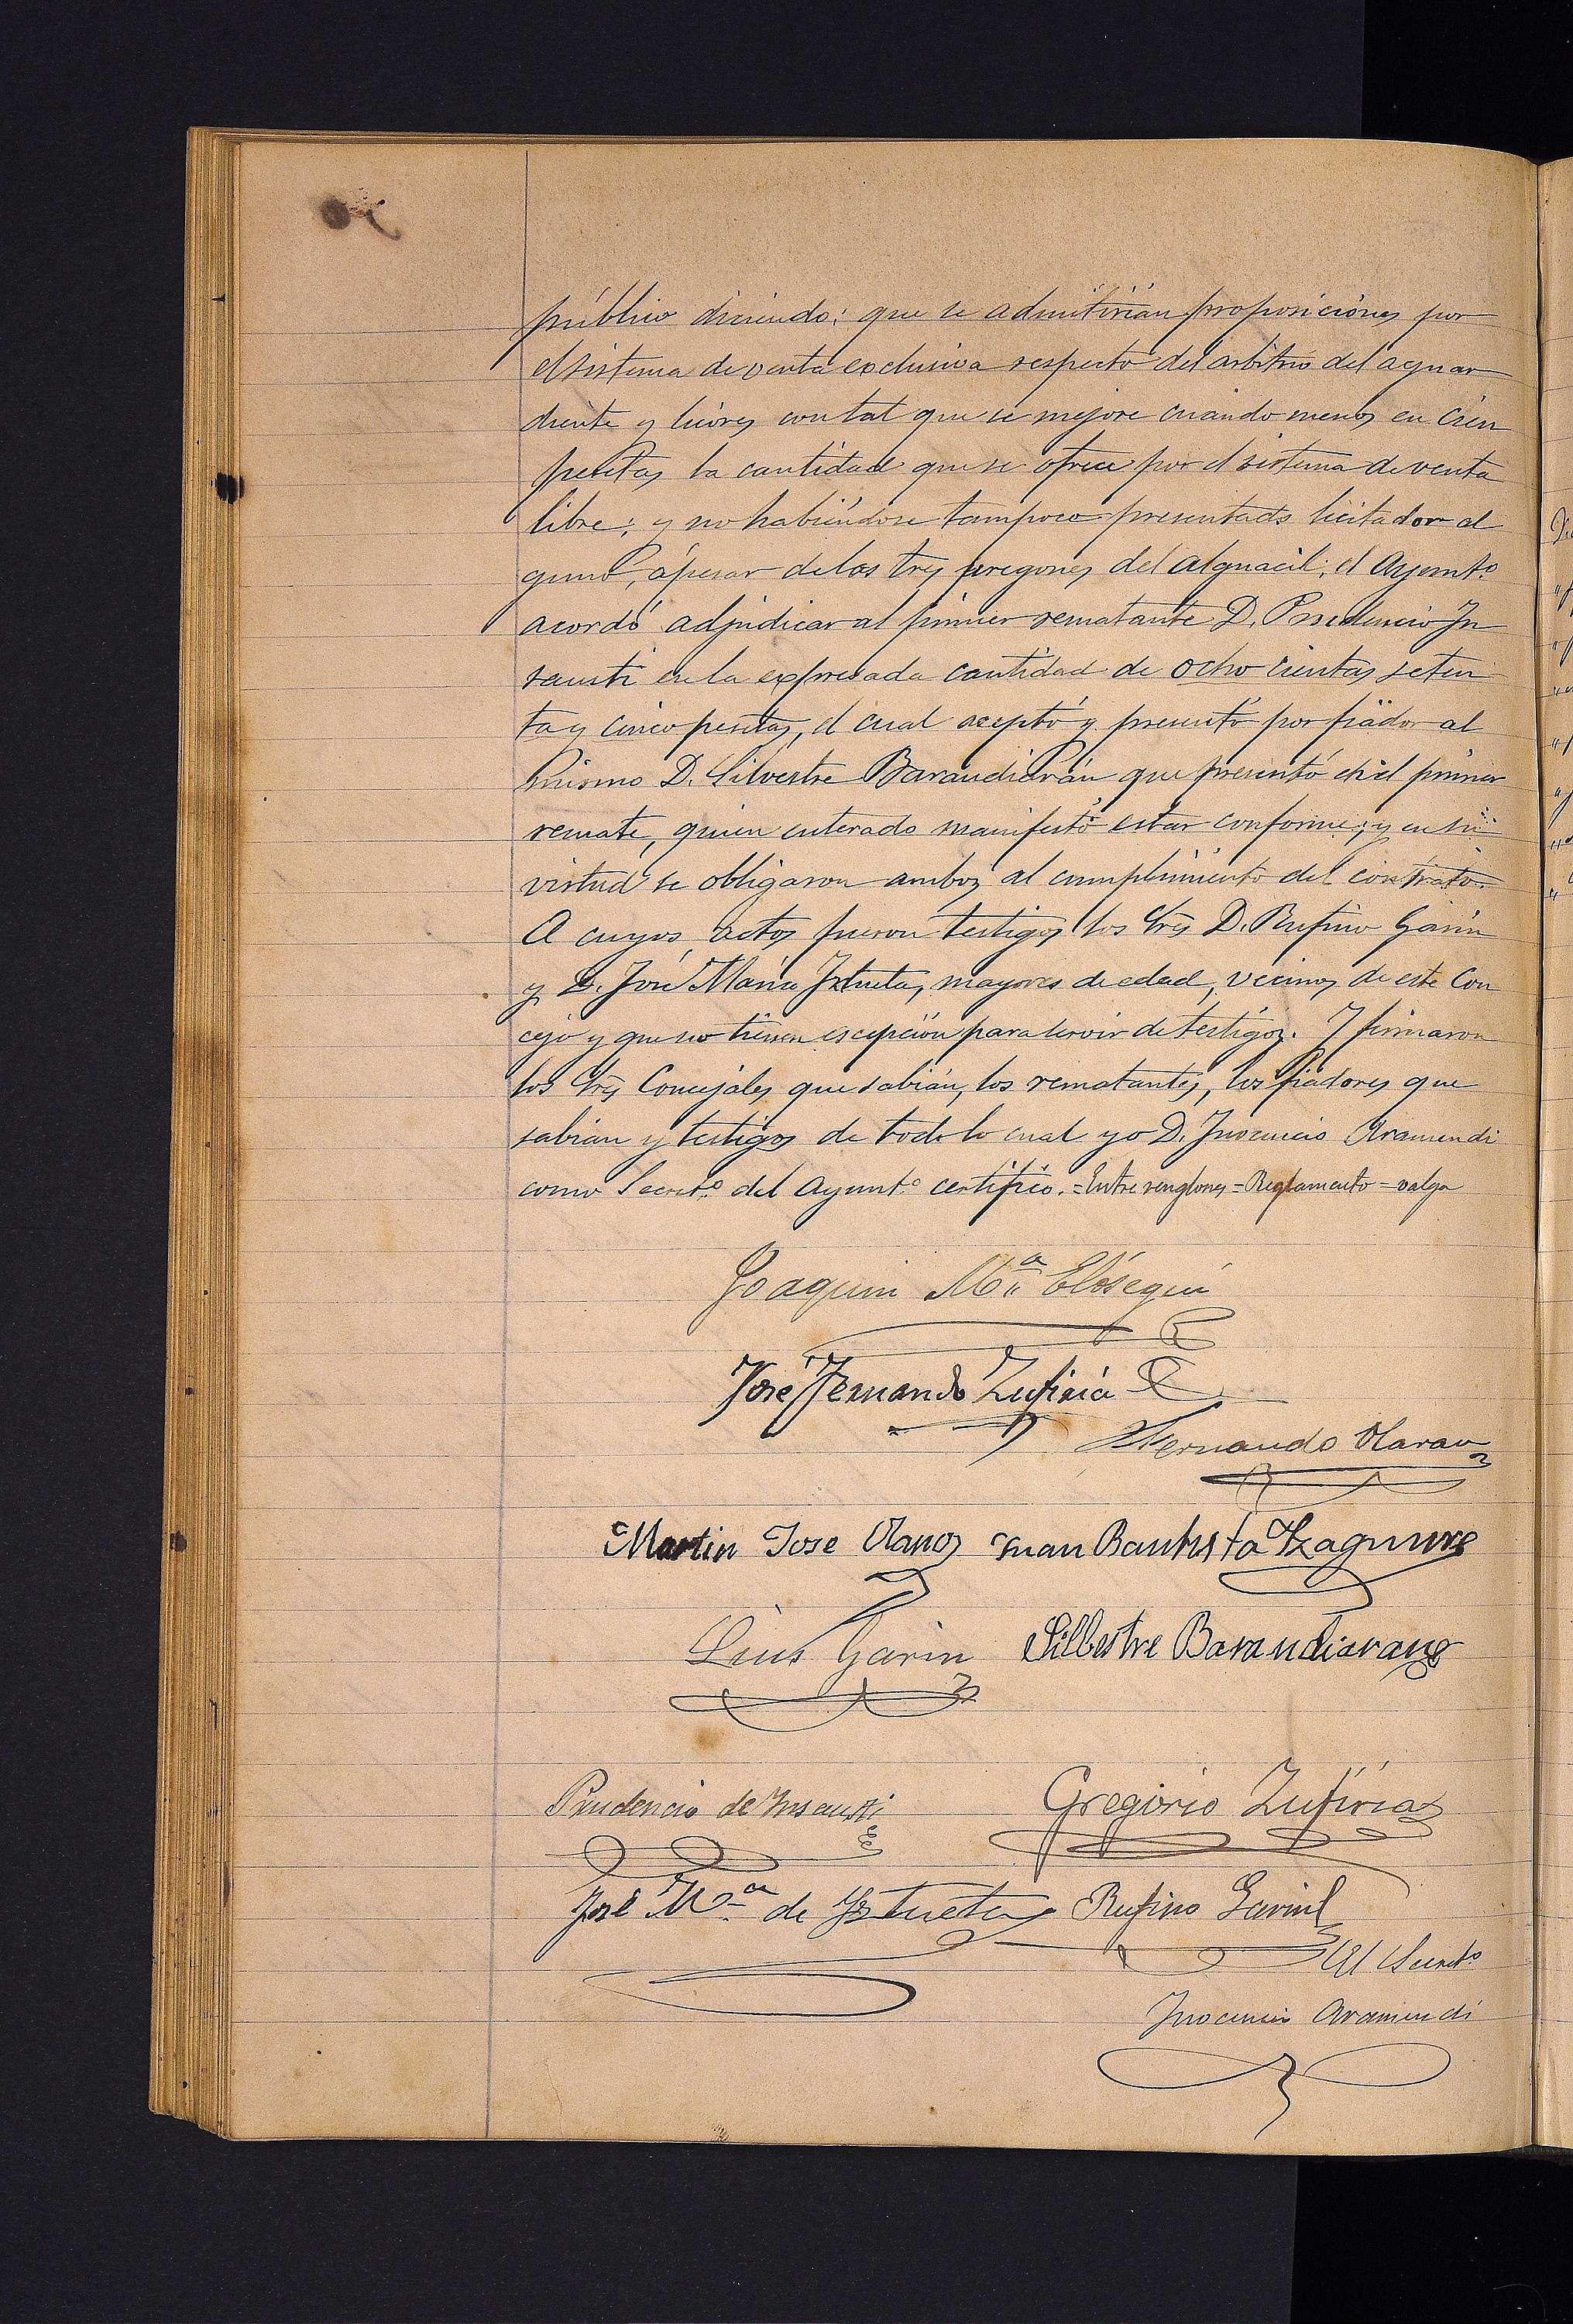 público diciendo: que se admitirián proposiciónes por
el sistema de venta esclusiva respecto del arbitrio del aguar
diente y licores con tal que se mejore cuando menos en cien
pesetas la cantidad que se ofrece por el sistema de venta
libre; y no habiéndose tampoco presentado licitador al
guno, ápesar de los tres pregones del alguacil; el Ayunt.º
acordó adjudicar al primer rematante D. Prudencio In
sausti en la expresada cantidad de ocho cientas seten
ta y cinco pesetas, el cual aceptó y presentó por fiador al
mismo D. Silvestre Barandiarán que presentó en el primer
remate, quien enterado manifestó estar conforme; y en su
virtud se obligaron ambos al cumplimiento del contrato.
A cuyos actos fueron testigos los Srs D. Rufino Garin
y D. José María Iztueta, mayores de edad, vecinos de este Con
cejo y que no tienen escepción para servir de testigos. Y firmaron
los Srs Concejales que sabián, los rematantes, los fiadores que
sabian y testigos de todo lo cual yo D. Inocencio Aramendi
como Secret.º del Ayunt.º certifico.=Entre renglones=Reglamento=valga
Joaquin M.ª Elósegui
José Fernando Zufiria
Fernando Olaran
Martin Jose Olano Juan Bautista Yzaguirre
Luis Garin Silbestre Barandiaran
Prudencio de Insausti Gregorio Zufiria
José M.ª de Yztueta Rufino Garin
El Secret.º
Inocencio Aramendi